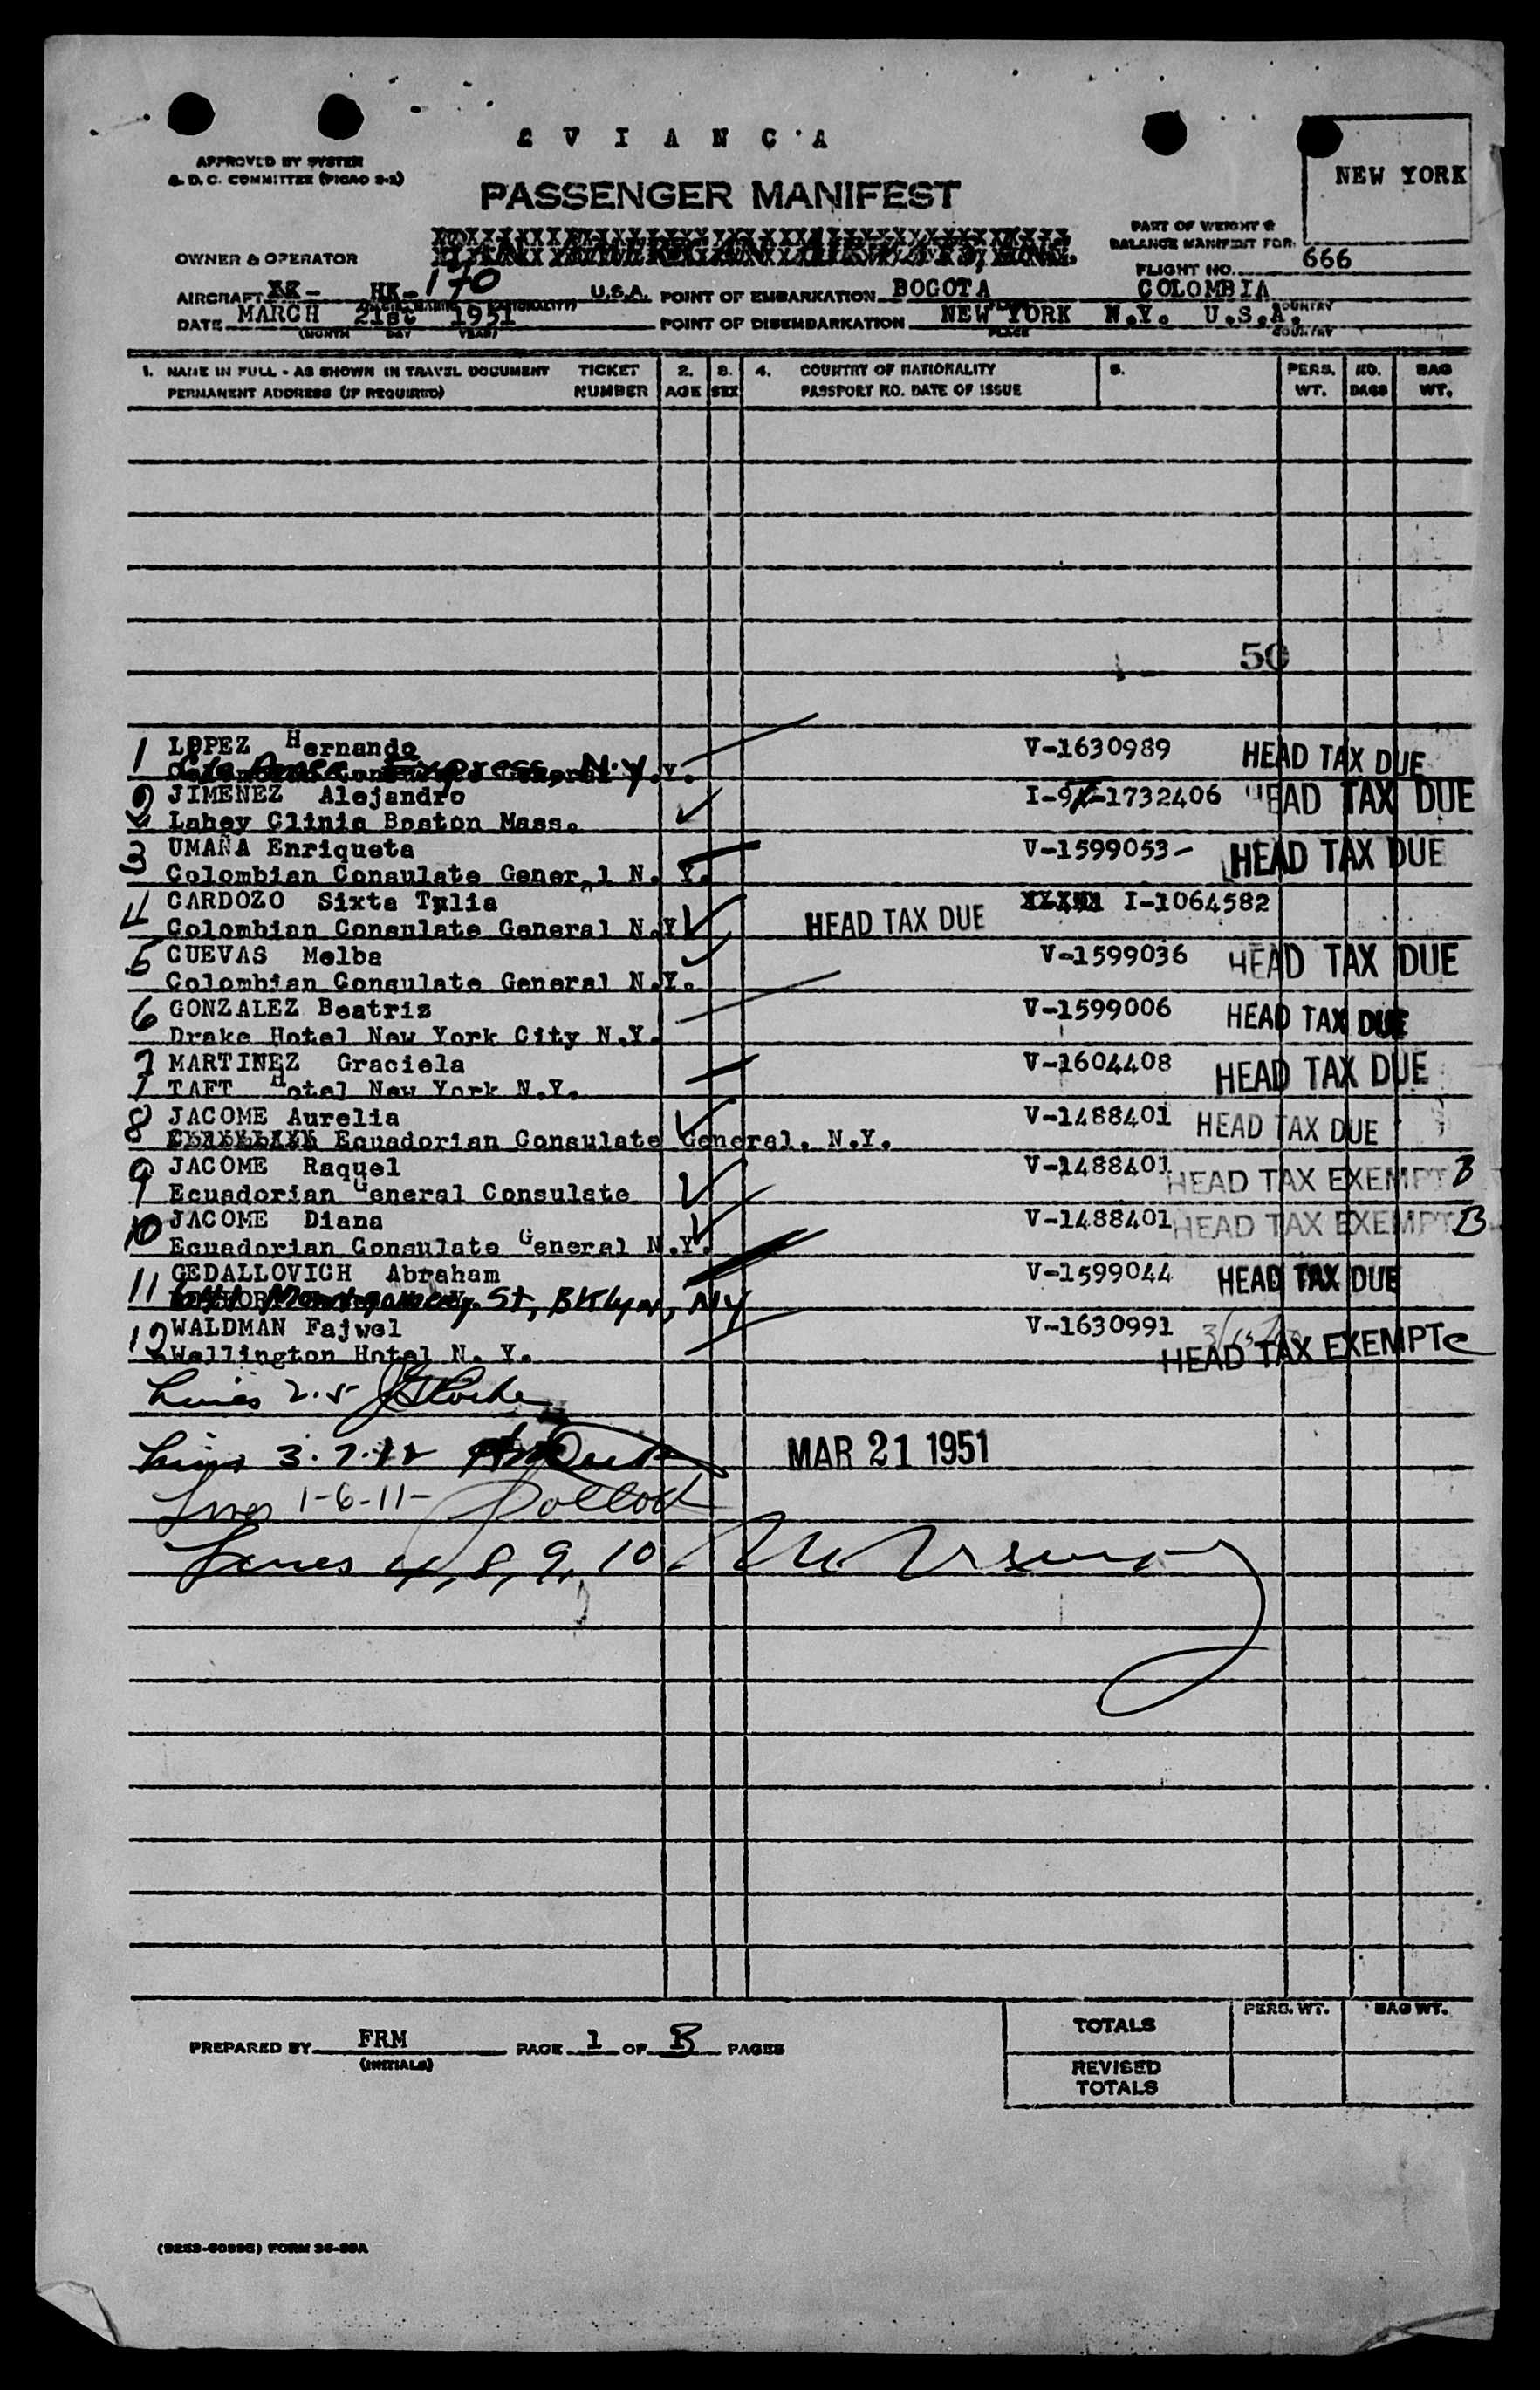 A V I A N C A
APPROVED BY SYSTEM
& D. C. COMMITTEE (PICAO 2-2)
PASSENGER MANIFEST
NEW YORK
PAN AMERICAN AIRWAYS, INC.
PART OF WEIGHT &
BALANCE MANIFEST FOR:
OWNER & OPERATOR
FLIGHT NO. 666
AIRCRAFT XX- HK-170 U.S.A. POINT OF EMBARKATION BOGOTA COLOMBIA
DATE MARCH 21st 1951 POINT OF DISEMBARKATION NEW YORK N.Y. U.S.A.
(MONTH DAY YEAR) PLACE COUNTRY
1. NAME IN FULL - AS SHOWN IN TRAVEL DOCUMENT TICKET 2. 3. 4. COUNTRY OF NATIONALITY 5. PERS. NO. BAG
PERMANENT ADDRESS (IF REQUIRED) NUMBER AGE SEX PASSPORT NO. DATE OF ISSUE WT. BAGS WT.
50
1 LOPEZ Hernando V-1630989 HEAD TAX DUE
Express, N.Y.
2 JIMENEZ Alejandro I-1732406 HEAD TAX DUE
Lahey Clinic Boston Mass.
3 UMAÑA Enriqueta V-1599053- HEAD TAX DUE
Colombian Consulate General N. Y.
4 CARDOZO Sixta Tulia I-1064582
Colombian Consulate General N.Y. HEAD TAX DUE
5 CUEVAS Melba V-1599036 HEAD TAX DUE
Colombian Consulate General N.Y.
6 GONZALEZ Beatriz V-1599006 HEAD TAX DUE
Drake Hotel New York City N.Y.
7 MARTINEZ Graciela V-1604408 HEAD TAX DUE
TAFT Hotel New York N.Y.
8 JACOME Aurelia V-1488401 HEAD TAX DUE
Ecuadorian Consulate General. N.Y.
9 JACOME Raquel V-1488401 HEAD TAX EXEMPT B
Ecuadorian General Consulate
10 JACOME Diana V-1488401 HEAD TAX EXEMPT B
Ecuadorian Consulate General N.Y.
11 GEDALLOVICH Abraham V-1599044 HEAD TAX DUE
641 Montgomery St, BKlyn, NY
12 WALDMAN Fajwel V-1630991
Wellington Hotel N. Y. HEAD TAX EXEMPT C
Lines 2.5
Lines 3.7.12 MAR 21 1951
Lines 1-6-11-
Lines 4, 8, 9, 10
PERS. WT. BAG WT.
TOTALS
PREPARED BY FRM PAGE 1 OF B PAGES
(INITIALS)
REVISED
TOTALS
(9253-60996) FORM 36-35A